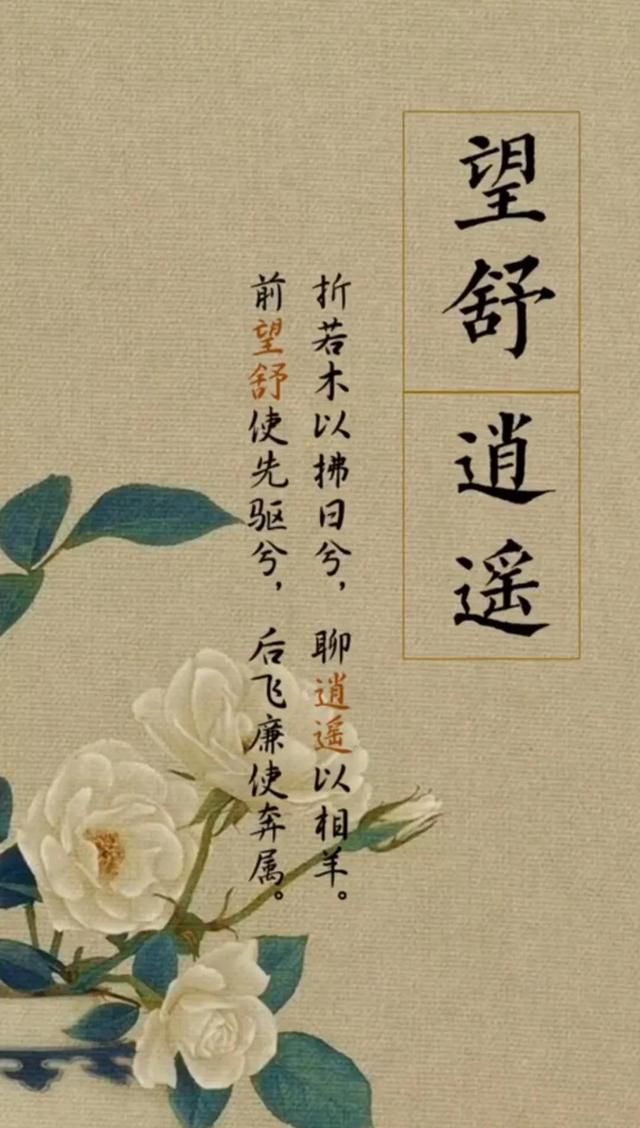 望舒
逍遥
折若木以拂日兮，聊逍遥以相羊。
前望舒使先驱兮，后飞廉使奔属。